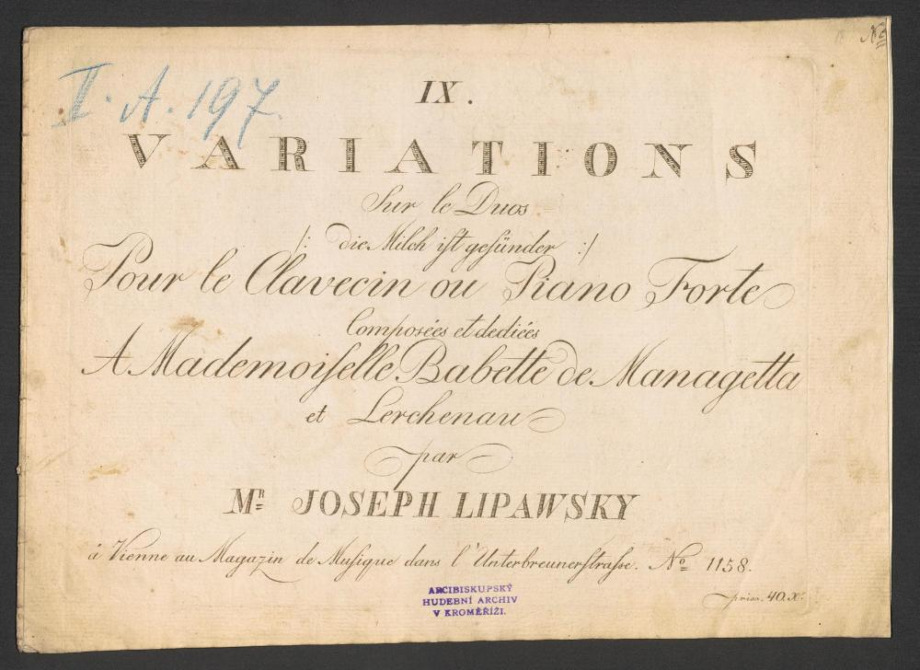 No
II. A. 197.
IX.
VARIATIONS
Sur le Duos
/: die Milch iſt geſünder :/
Pour le Clavecin ou Piano Forte
Composées et dediées
A Mademoiſelle Babette de Managetta
et Lerchenau
par
Mr. JOSEPH LIPAWSKY
à Vienne au Magazin de Muſique dans l'Unterbreunerſtraſse. No 1158.
prix. 40 Xr.
ARCIBISKUPSKÝ
HUDEBNÍ ARCHIV
V KROMĚŘÍŽI.